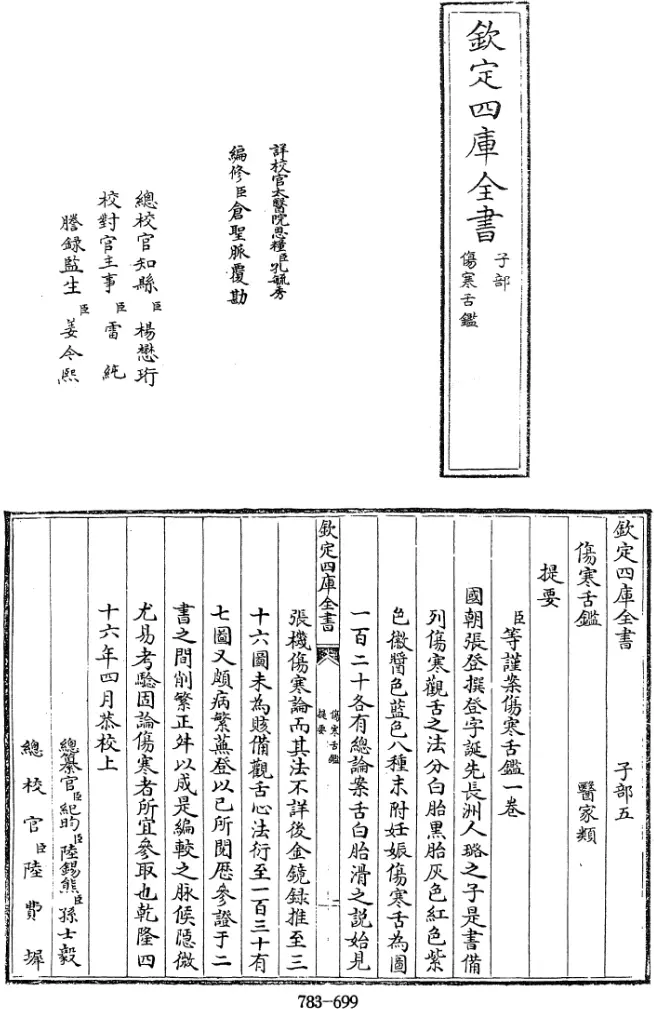 欽定四庫全書
子部
傷寒舌鑑
詳校官太醫院恩糧臣孔毓秀
編修臣倉聖脈覆勘
總校官知縣臣楊懋珩
校對官主事臣雷純
謄錄監生臣姜令熙
欽定四庫全書 子部五
傷寒舌鑑 醫家類
提要
臣等謹案傷寒舌鑑一卷
國朝張登撰登字誕先長洲人璐之子是書備
列傷寒觀舌之法分白胎黑胎灰色紅色紫
色黴醬色藍色八種末附妊娠傷寒舌為圖
一百二十各有總論案舌白胎滑之說始見
欽定四庫全書
傷寒舌鑑
提要
一
張機傷寒論而其法不詳後金鏡録推至三
十六圖未為賅備觀舌心法衍至一百三十有
七圖又頗病繁蕪登以己所閱歴參證于二
書之間削繁正舛以成是編較之脉候隱微
尤易考驗固論傷寒者所宜參取也乾隆四
十六年四月恭校上
總纂官臣紀昀臣陸錫熊臣孫士毅
總校官臣陸費墀
783-699